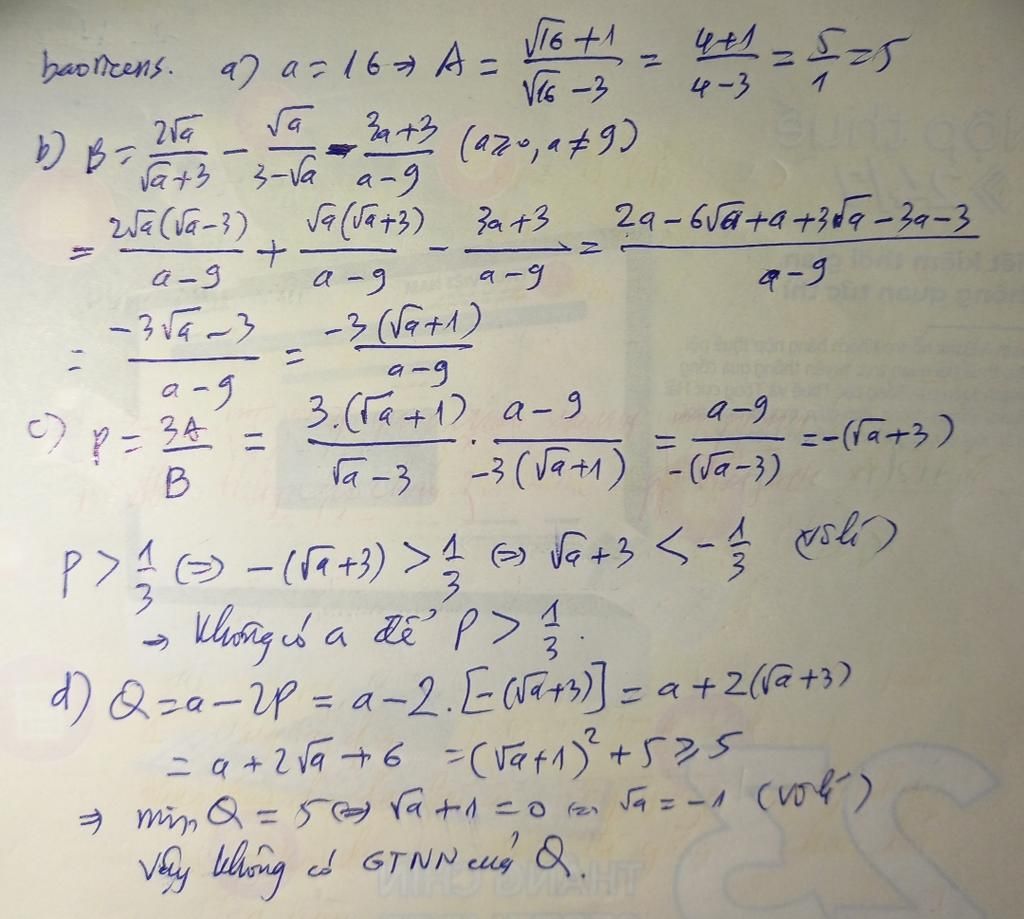 baoricens. a) a = 16 → A = (√16 + 1)/(√16 - 3) = (4+1)/(4-3) = 5/1 = 5
b) B = 2√a/(√a+3) - √a/(3-√a) - (3a+3)/(a-9) (a≥0, a≠9)
= 2√a(√a-3)/(a-9) + √a(√a+3)/(a-9) - (3a+3)/(a-9) = (2a-6√a+a+3√a-3a-3)/(a-9)
= (-3√a-3)/(a-9) = -3(√a+1)/(a-9)
c) P = 3A/B = 3.(√a+1)/(√a-3) . (a-9)/(-3(√a+1)) = (a-9)/(-(√a-3)) = -(√a+3)
P > 1/3 ⇔ -(√a+3) > 1/3 ⇔ √a+3 < -1/3 (vô lí)
→ Không có a để P > 1/3.
d) Q = a - 2P = a - 2.[-(√a+3)] = a + 2(√a+3)
= a + 2√a + 6 = (√a+1)² + 5 ≥ 5
⇒ min Q = 5 ⇔ √a + 1 = 0 ⇔ √a = -1 (vô lí)
Vậy không có GTNN của Q.
THÁNG CHÍN
23